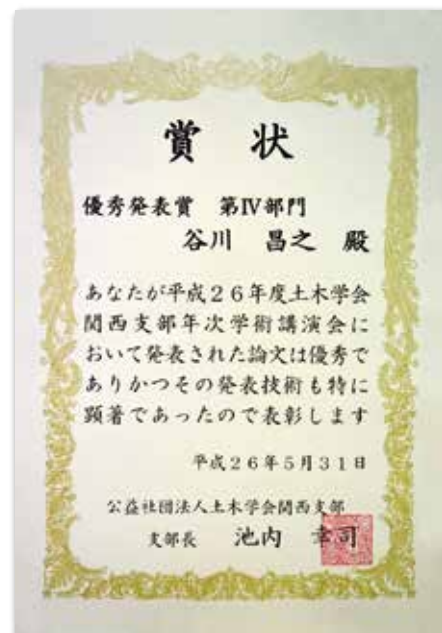 賞状
優秀発表賞 第Ⅳ部門
谷川 昌之 殿
あなたが平成26年度土木学会
関西支部年次学術講演会に
おいて発表された論文は優秀で
ありかつその発表技術も特に
顕著であったので表彰します
平成26年5月31日
公益社団法人土木学会関西支部
支部長 池内 幸司